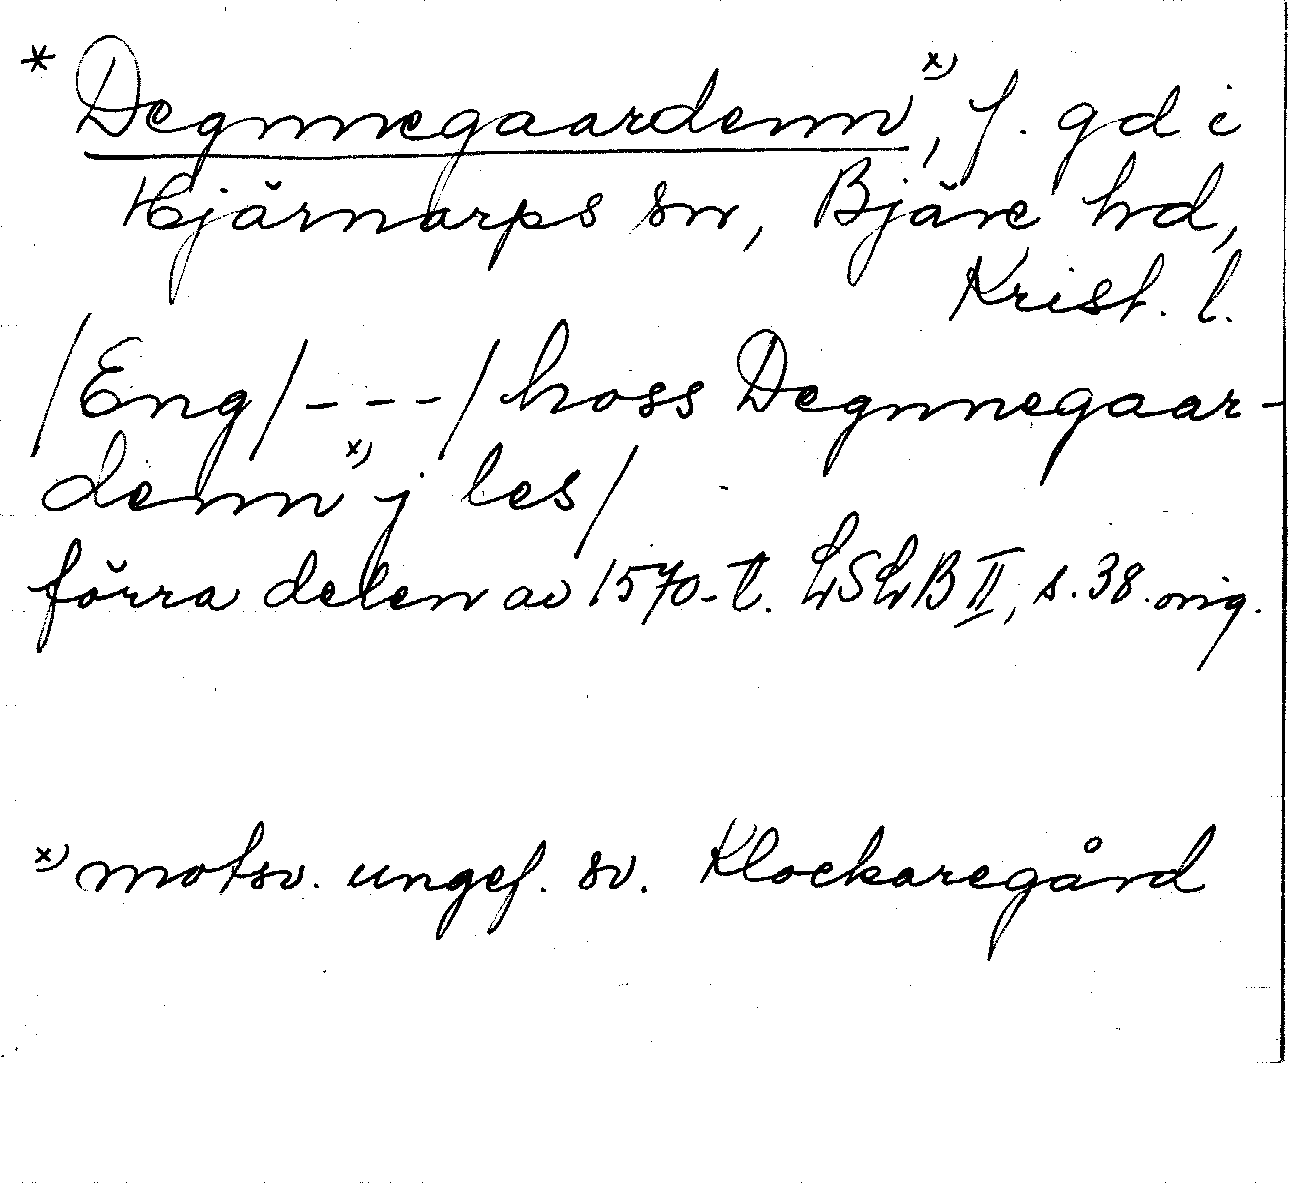 * Degnnegaardenn x), f. gd i
Hjärnarps sn, Bjäre hd,
Krist. l.
/Eng/ - - - / hoss Degnnegaar-
denn x) j les/
förra delen av 1570-t. LSLB II, s. 38. orig.
x) motsv. ungef. sv. Klockaregård